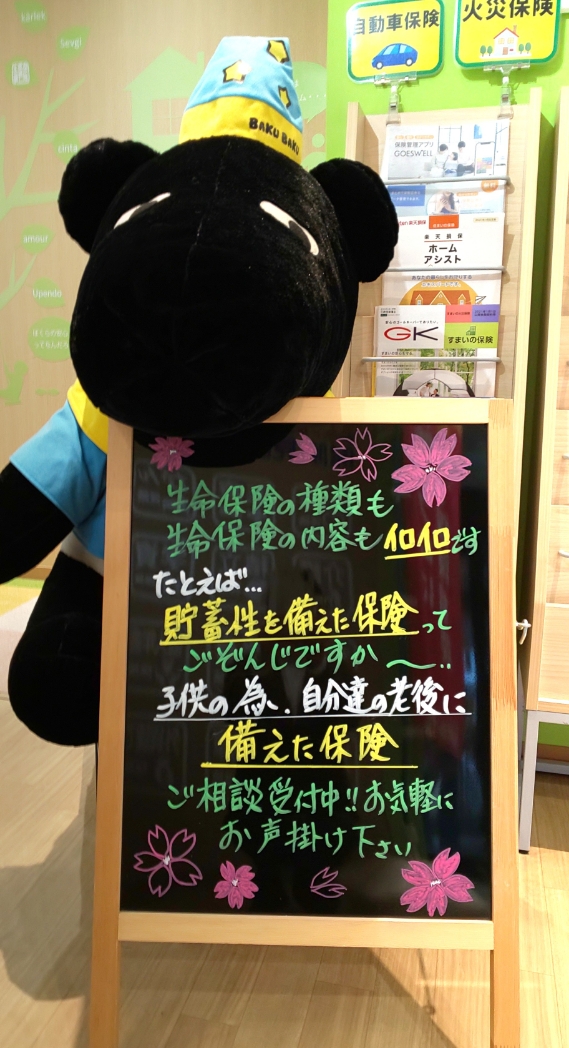 kärlek
Sevgi
amour
Upendo
自動車保険
火災保険
BAKU BAKU
保険管理アプリ
GOESWELL
楽天損保
ホーム
アシスト
GK
すまいの保険
生命保険の種類も
生命保険の内容もイロイロです
たとえば…
貯蓄性を備えた保険って
ごぞんじですか〜..
子供の為、自分達の老後に
備えた保険
ご相談受付中!!お気軽に
お声掛け下さい